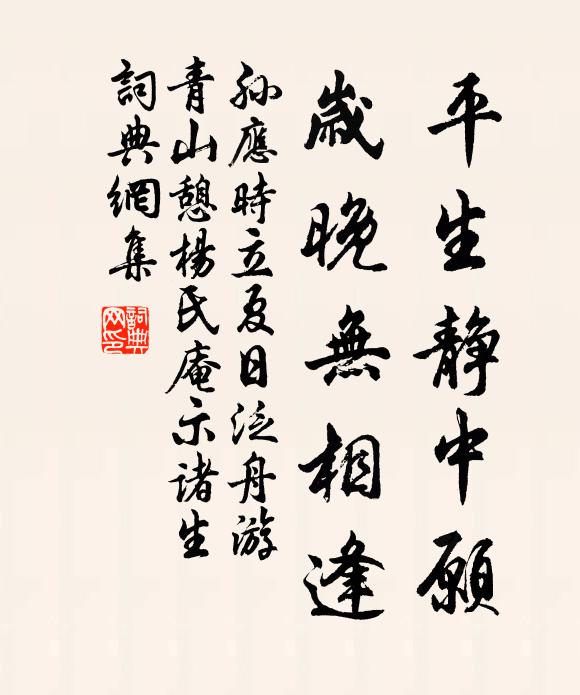 平生靜中願
歲晚無相逢
孫應時立夏日泛舟游
青山憩楊氏庵示诸生
詞典網集
詞典
网印